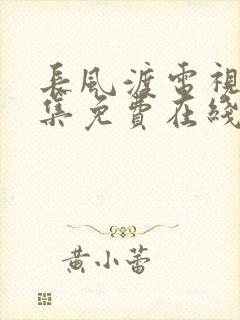 長風渡電視
集免費在綫
黄小蕾